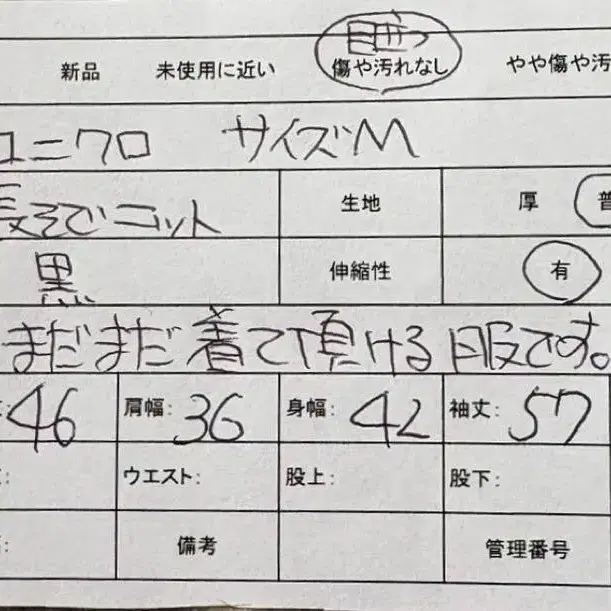 目立つ
新品 未使用に近い 傷や汚れなし やや傷や汚
ユニクロ サイズM
長そでニット 生地 厚 普
黒 伸縮性 有
まだまだ着て頂ける服です。
46 肩幅: 36 身幅: 42 袖丈: 57
ウエスト: 股上: 股下:
備考 管理番号